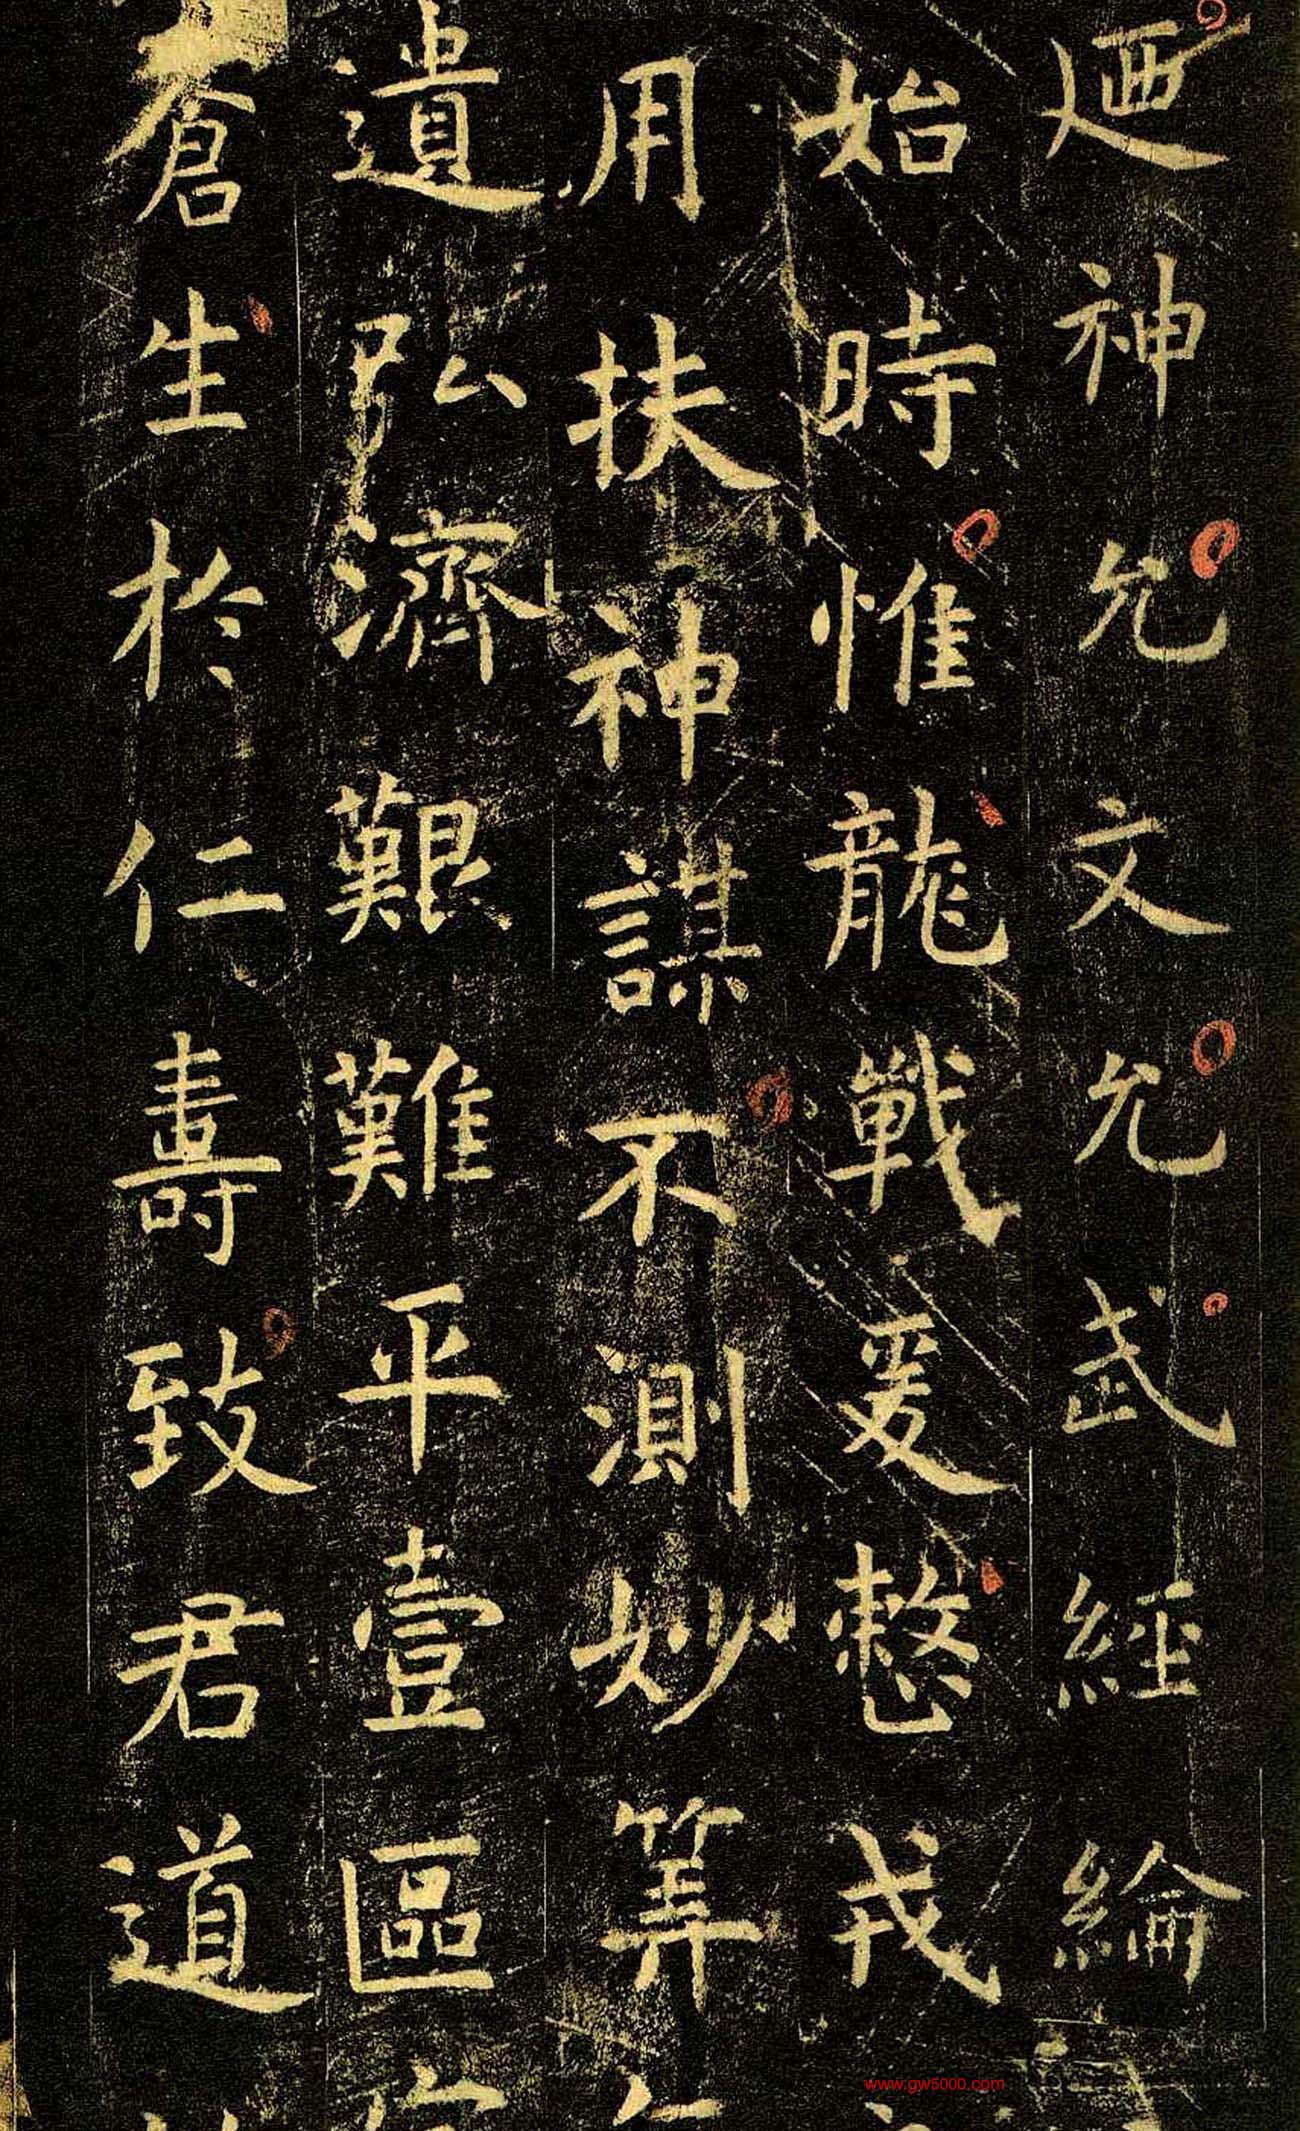 迺神允文允武經綸
始時惟龍戰爰整戎
用扶神謀不測妙筭
遺弘濟艱難平壹區
蒼生於仁壽致君道
www.gw5000.com